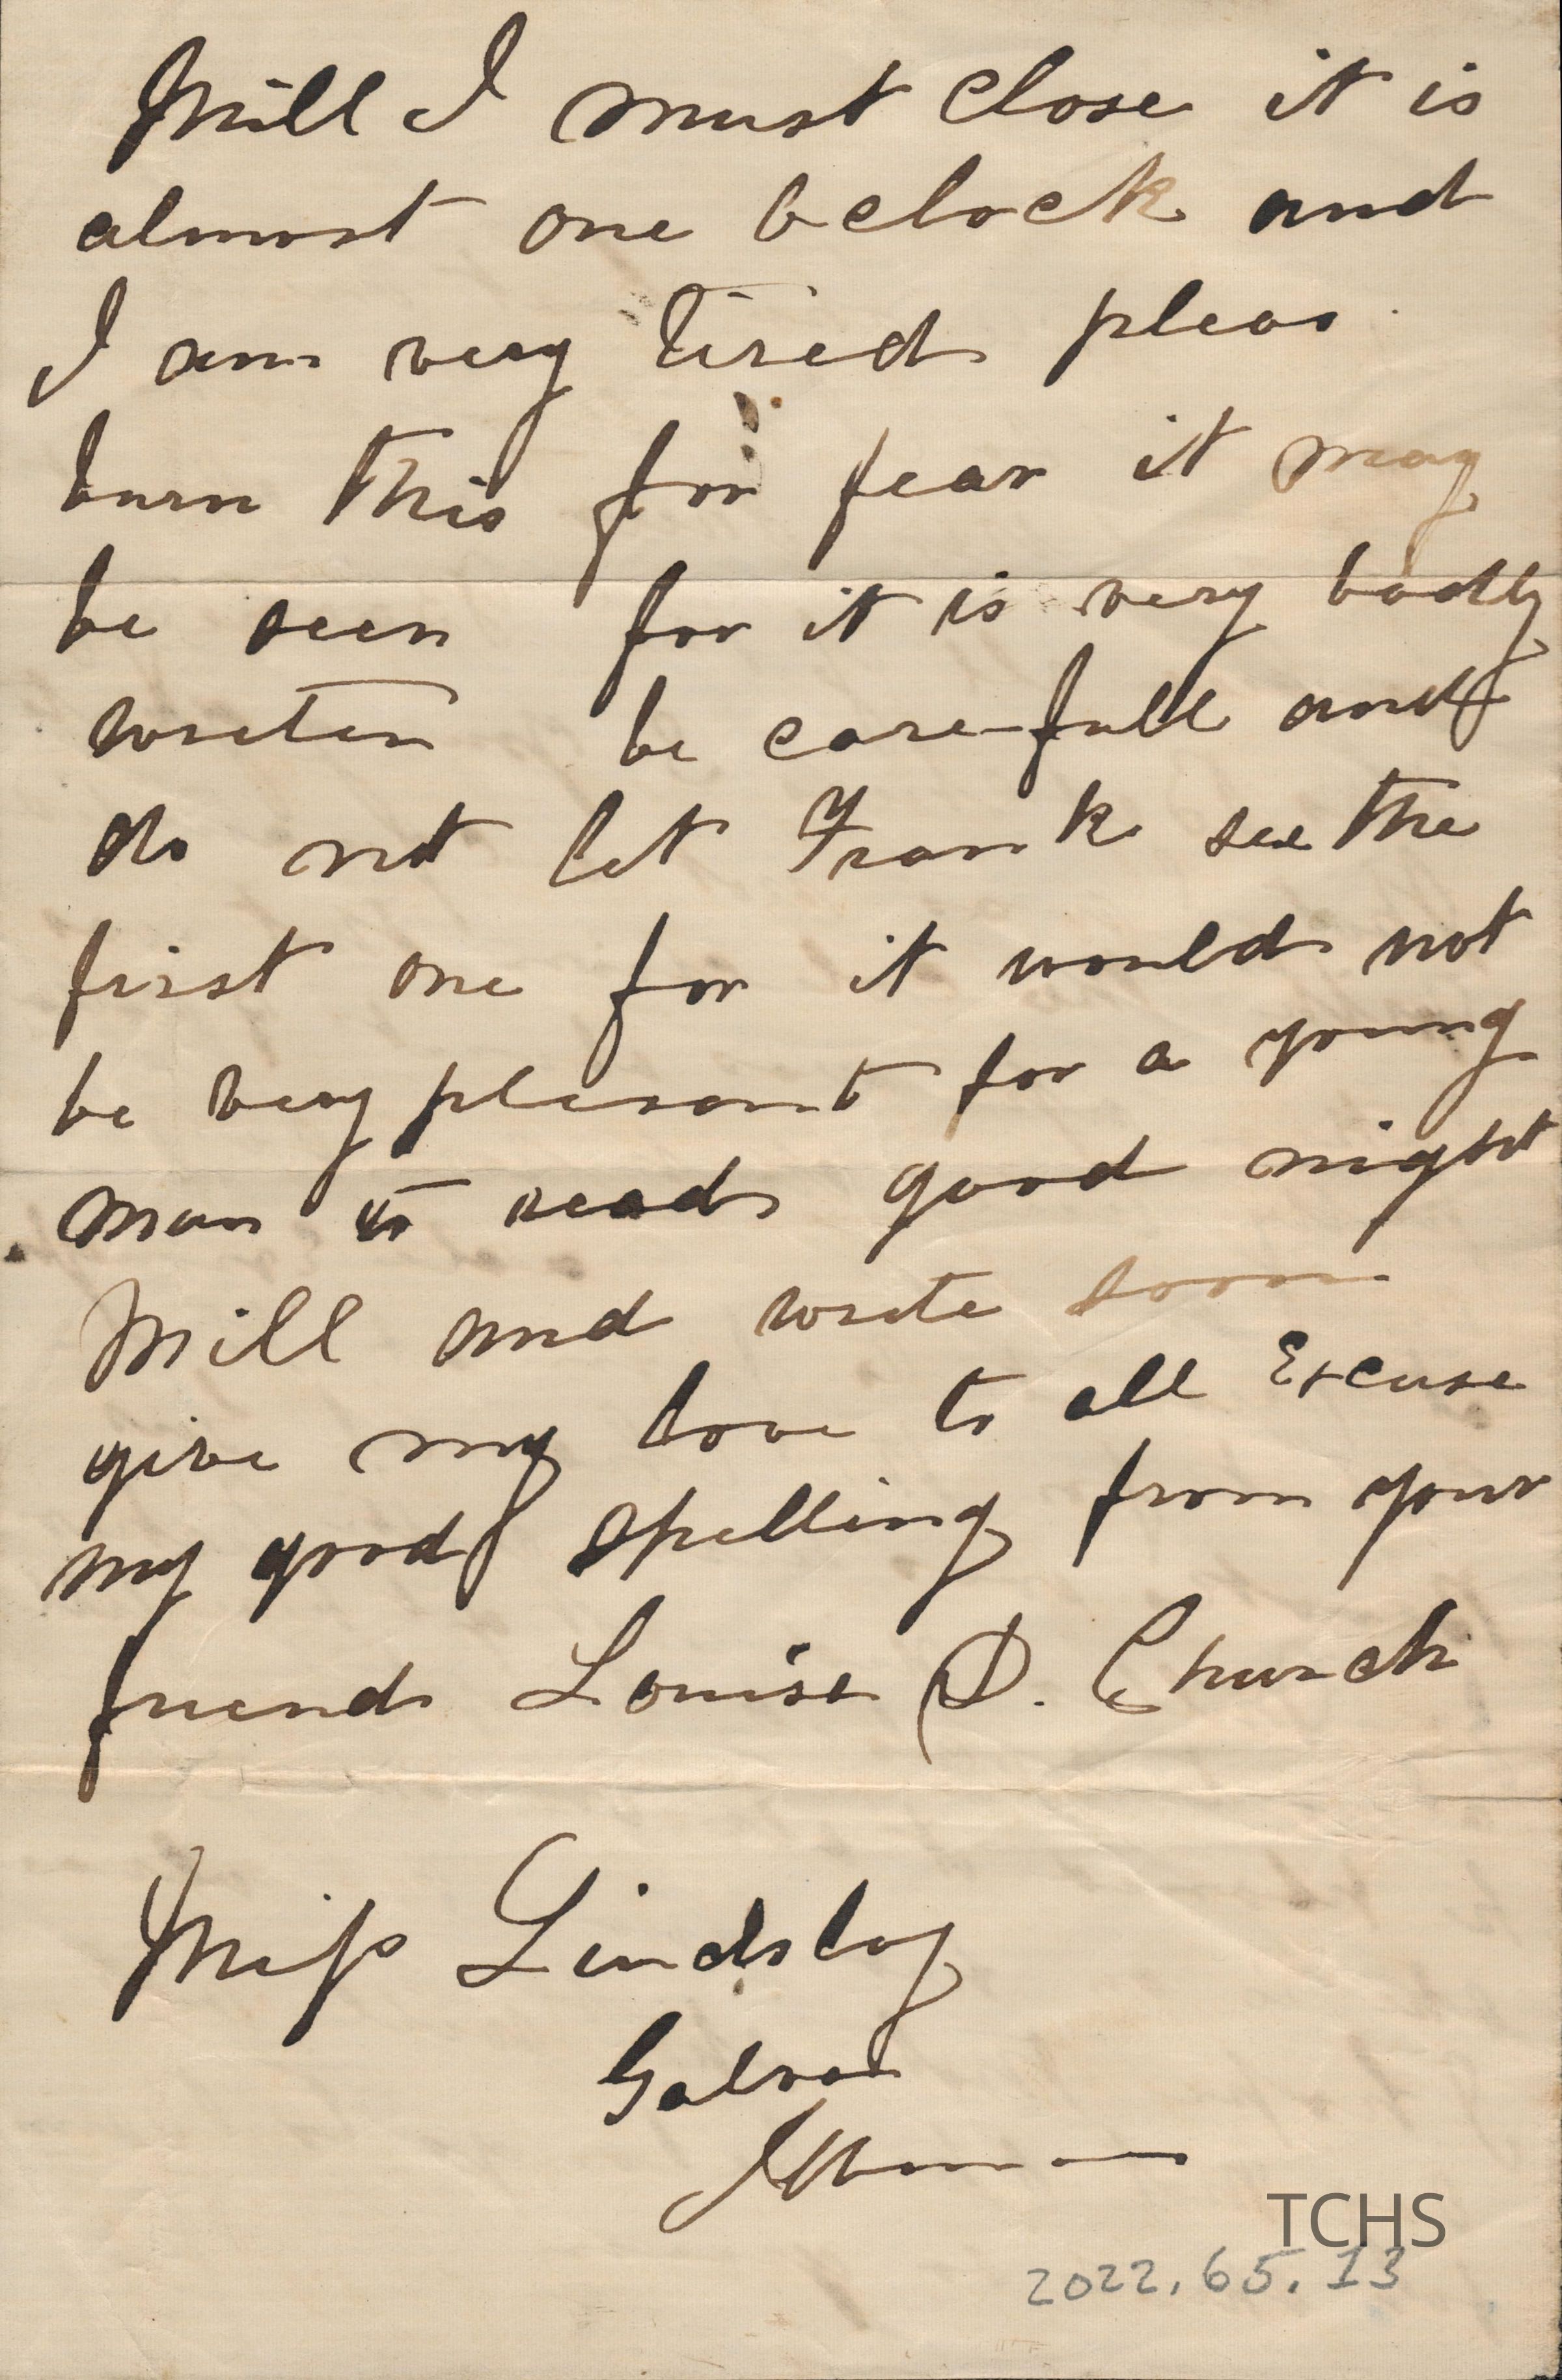 Mill I must close it is
almost one oclock and
I am very tired pleas
burn this for fear it may
be seen for it is very badly
writen be care-full and
do not let Frank see the
first one for it would not
be very plesant for a young
man to read good night
Mill and write soon
give my love to all Excuse
my good spelling from your
friend Louise D. Church
Miss Lindslay
Galva
Illinois
TCHS
2022.65.13